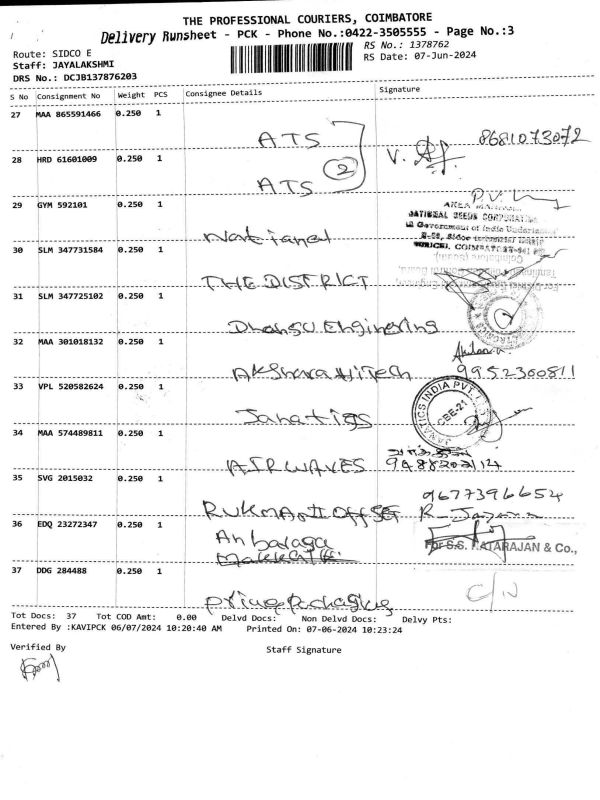 THE PROFESSIONAL COURIERS, COIMBATORE
Delivery Runsheet - PCK - Phone No.:0422-3505555 - Page No.:3
Route: SIDCO E
RS No.: 1378762
Staff: JAYALAKSHMI
RS Date: 07-Jun-2024
DRS No.: DCJB137876203
S No Consignment No Weight PCS Consignee Details Signature
27 MAA 865591466 0.250 1
ATS
8681073072
28 HRD 61601009 0.250 1
2
ATS
29 GYM 592101 0.250 1
NATIONAL SEEDS CORPORATION
National
30 SLM 347731584 0.250 1
THE DISTRICT
31 SLM 347725102 0.250 1
Engineering
32 MAA 301018132 0.250 1
Akshara HiTech 9952360811
33 VPL 520582624 0.250 1
JANATICS INDIA PVT. LTD
CBE-21
34 MAA 574489811 0.250 1
AIRWAVES
35 SVG 2015032 0.250 1
9677396654
OFFSET
36 EDQ 23272347 0.250 1
For S.S. NATARAJAN & Co.,
37 DDG 284488 0.250 1
C/N
Tot Docs: 37 Tot COD Amt: 0.00 Delvd Docs: Non Delvd Docs: Delvy Pts:
Entered By :KAVIPCK 06/07/2024 10:20:40 AM Printed On: 07-06-2024 10:23:24
Verified By
Staff Signature